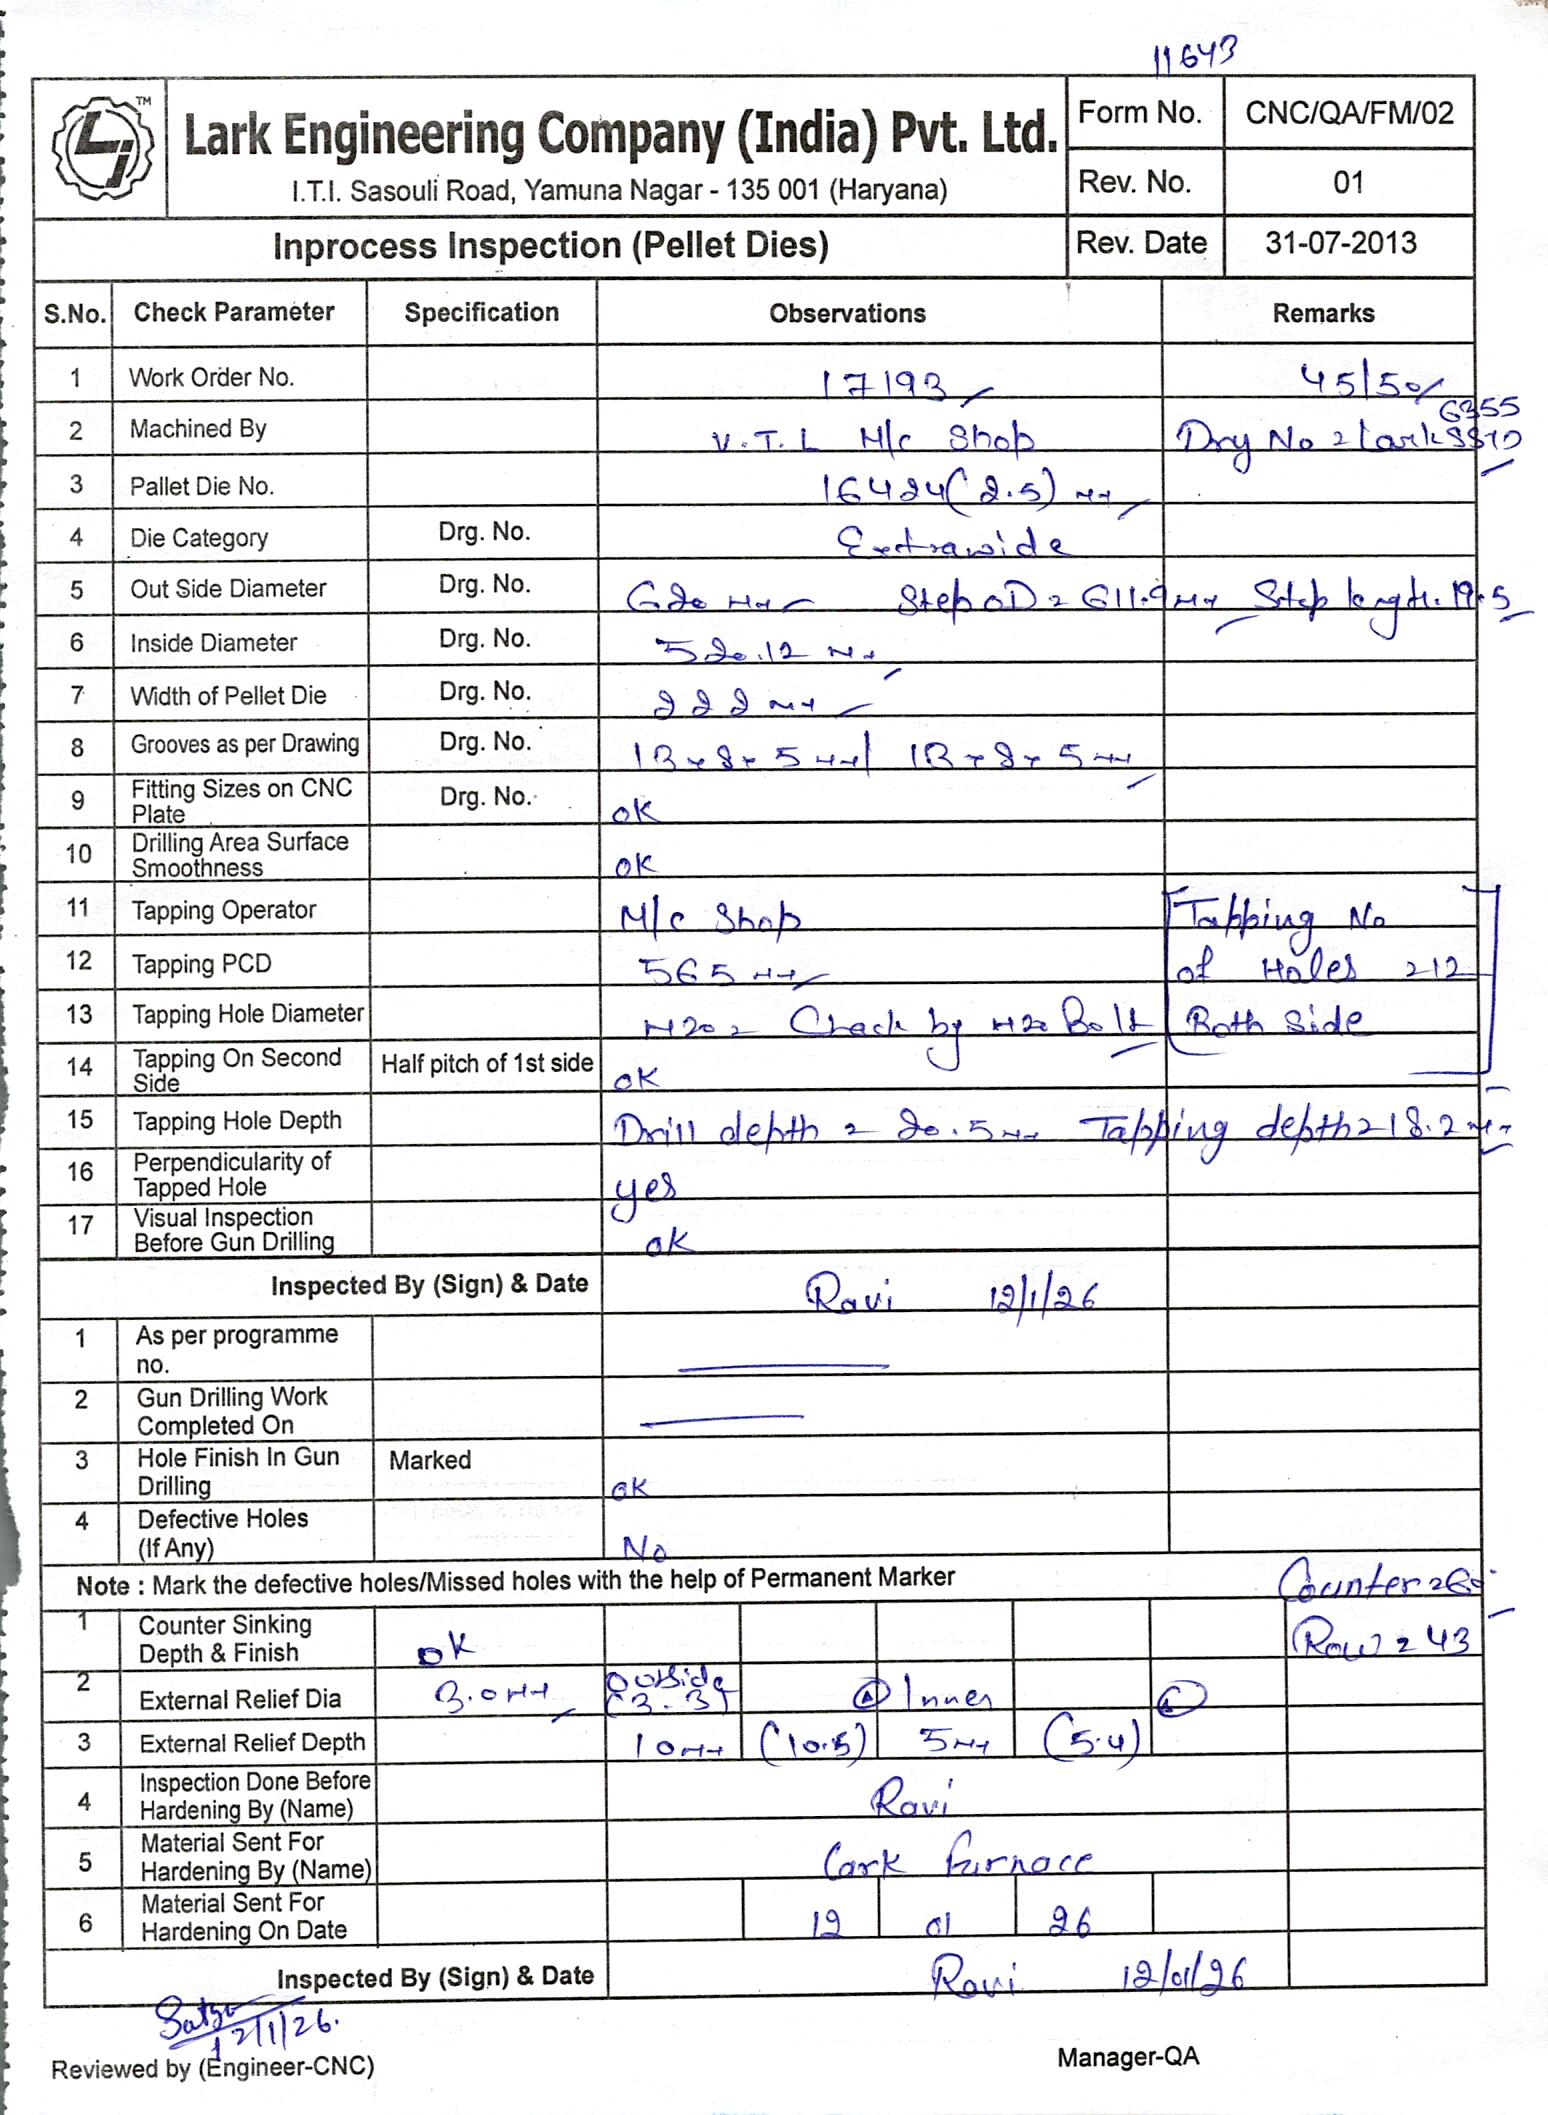 11643
TM
Lark Engineering Company (India) Pvt. Ltd.
I.T.I. Sasouli Road, Yamuna Nagar - 135 001 (Haryana)
Form No. CNC/QA/FM/02
Rev. No. 01
Inprocess Inspection (Pellet Dies) Rev. Date 31-07-2013
S.No. Check Parameter Specification Observations Remarks
1 Work Order No. 17193 45/50
2 Machined By V.T.L M/c Shop Drg No = Lark 6355
3 Pallet Die No. 16424 (2.5) mm
4 Die Category Drg. No. Extrawide
5 Out Side Diameter Drg. No. 620 mm Step OD = 611.9 mm Step length. 19.5
6 Inside Diameter Drg. No. 520.12 mm
7 Width of Pellet Die Drg. No. 222 mm
8 Grooves as per Drawing Drg. No. 13 x 8 x 5 mm / 13 x 8 x 5 mm
9 Fitting Sizes on CNC Plate Drg. No. ok
10 Drilling Area Surface Smoothness ok
11 Tapping Operator M/c Shop Tapping No
12 Tapping PCD 565 mm of Holes = 12
13 Tapping Hole Diameter M20 = Check by M20 Bolt Both Side
14 Tapping On Second Side Half pitch of 1st side ok
15 Tapping Hole Depth Drill depth = 20.5 mm Tapping depth = 18.2 mm
16 Perpendicularity of Tapped Hole yes
17 Visual Inspection Before Gun Drilling ok
Inspected By (Sign) & Date Ravi 12/1/26
1 As per programme no.
2 Gun Drilling Work Completed On
3 Hole Finish In Gun Drilling Marked ok
4 Defective Holes (If Any) No
Note : Mark the defective holes/Missed holes with the help of Permanent Marker Counter = 60
1 Counter Sinking Depth & Finish ok Row = 43
2 External Relief Dia 3.0 mm Outside (3.3) Inner
3 External Relief Depth 10 mm (10.5) 5 mm (5.4)
4 Inspection Done Before Hardening By (Name) Ravi
5 Material Sent For Hardening By (Name) Lark furnace
6 Material Sent For Hardening On Date 12 01 26
Inspected By (Sign) & Date Ravi 12/01/26
12/1/26.
Reviewed by (Engineer-CNC) Manager-QA